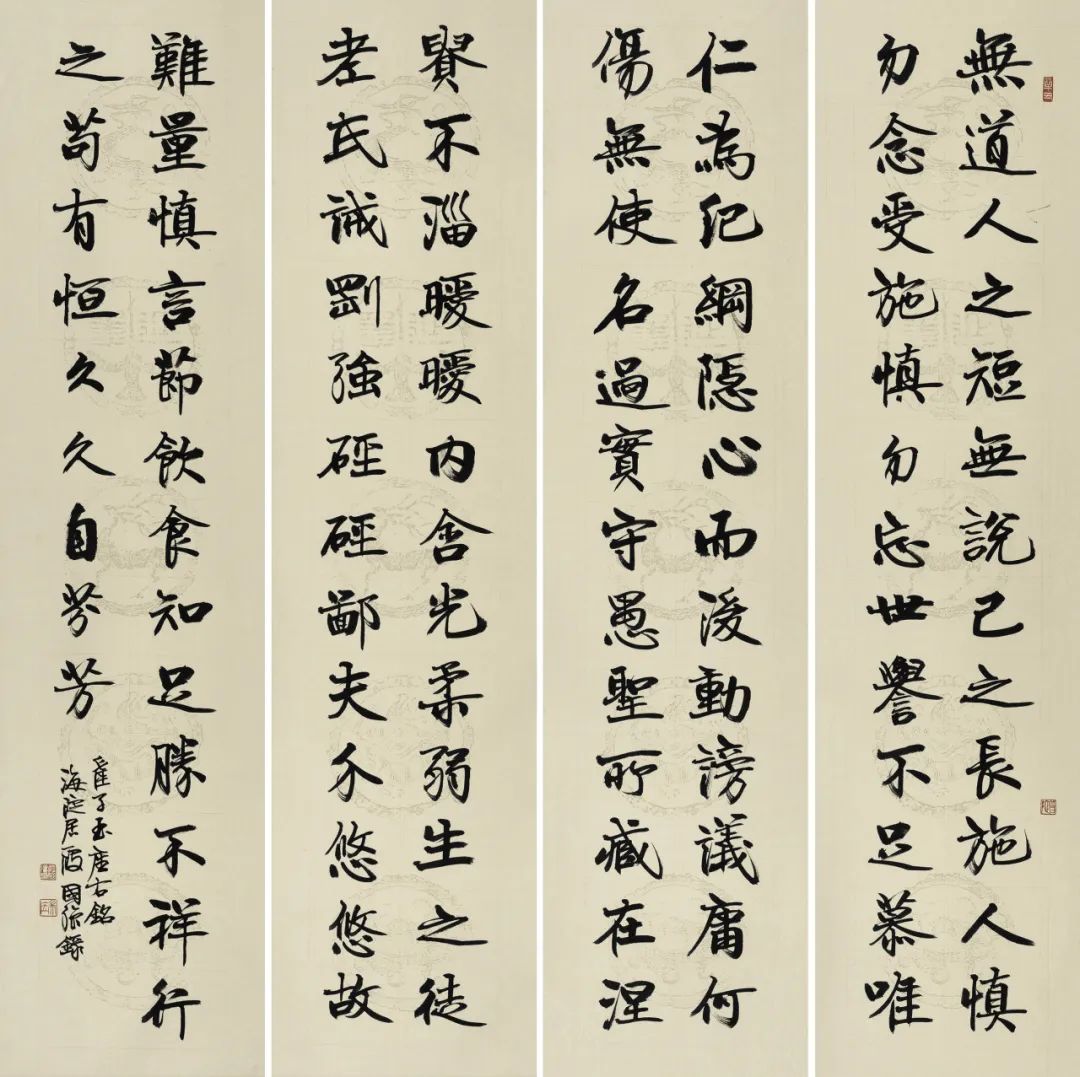 無道人之短無說己之長施人慎
勿念受施慎勿忘世譽不足慕唯
仁為紀綱隱心而後動謗議庸何
傷無使名過實守愚聖所臧在涅
貴不淄曖曖內含光柔弱生之徒
老氏誡剛強硜硜鄙夫介悠悠故
難量慎言節飲食知足勝不祥行
之苟有恒久久自芬芳
崔子玉座右銘
海淀居國強錄